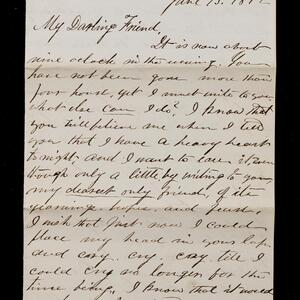 June 13. 18
My Darling Friend,
It is now about
nine o'clock in the evening. You
have not been gone more than
four hours, yet I must write to you.
What else can I do? I know that
you will believe me when I tell
you that I have a heavy heart
to-night, and I want to ease it, even
though only a little by writing to you,
my dearest only friend, of its
yearning, hopes, and fears.
I wish that just now I could
place my head in your lap,
and cry, cry, cry, till I
could cry no longer for the
time being. I know that it would